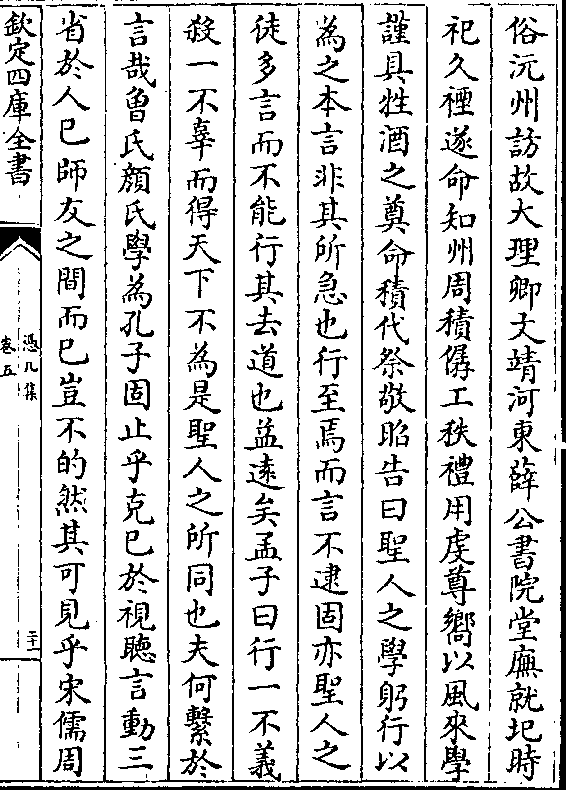 俗沅州訪故大理卿文靖河東薛公書院堂廡就圮時
祀久禋遂命知州周積僝工秩禮用虔尊嚮以風來學
謹具牲酒之奠命積代祭敬昭告曰聖人之學躬行以
為之本言非其所急也行至焉而言不逮固亦聖人之
徒多言而不能行其去道也益遠矣孟子曰行一不義
殺一不辜而得天下不為是聖人之所同也夫何繫於
言哉魯氏顏氏學為孔子固止乎克巳於視聽言動三
省於人巳師友之間而巳豈不的然其可見乎宋儒周
欽定四庫全書
憑几集
卷五
二十一